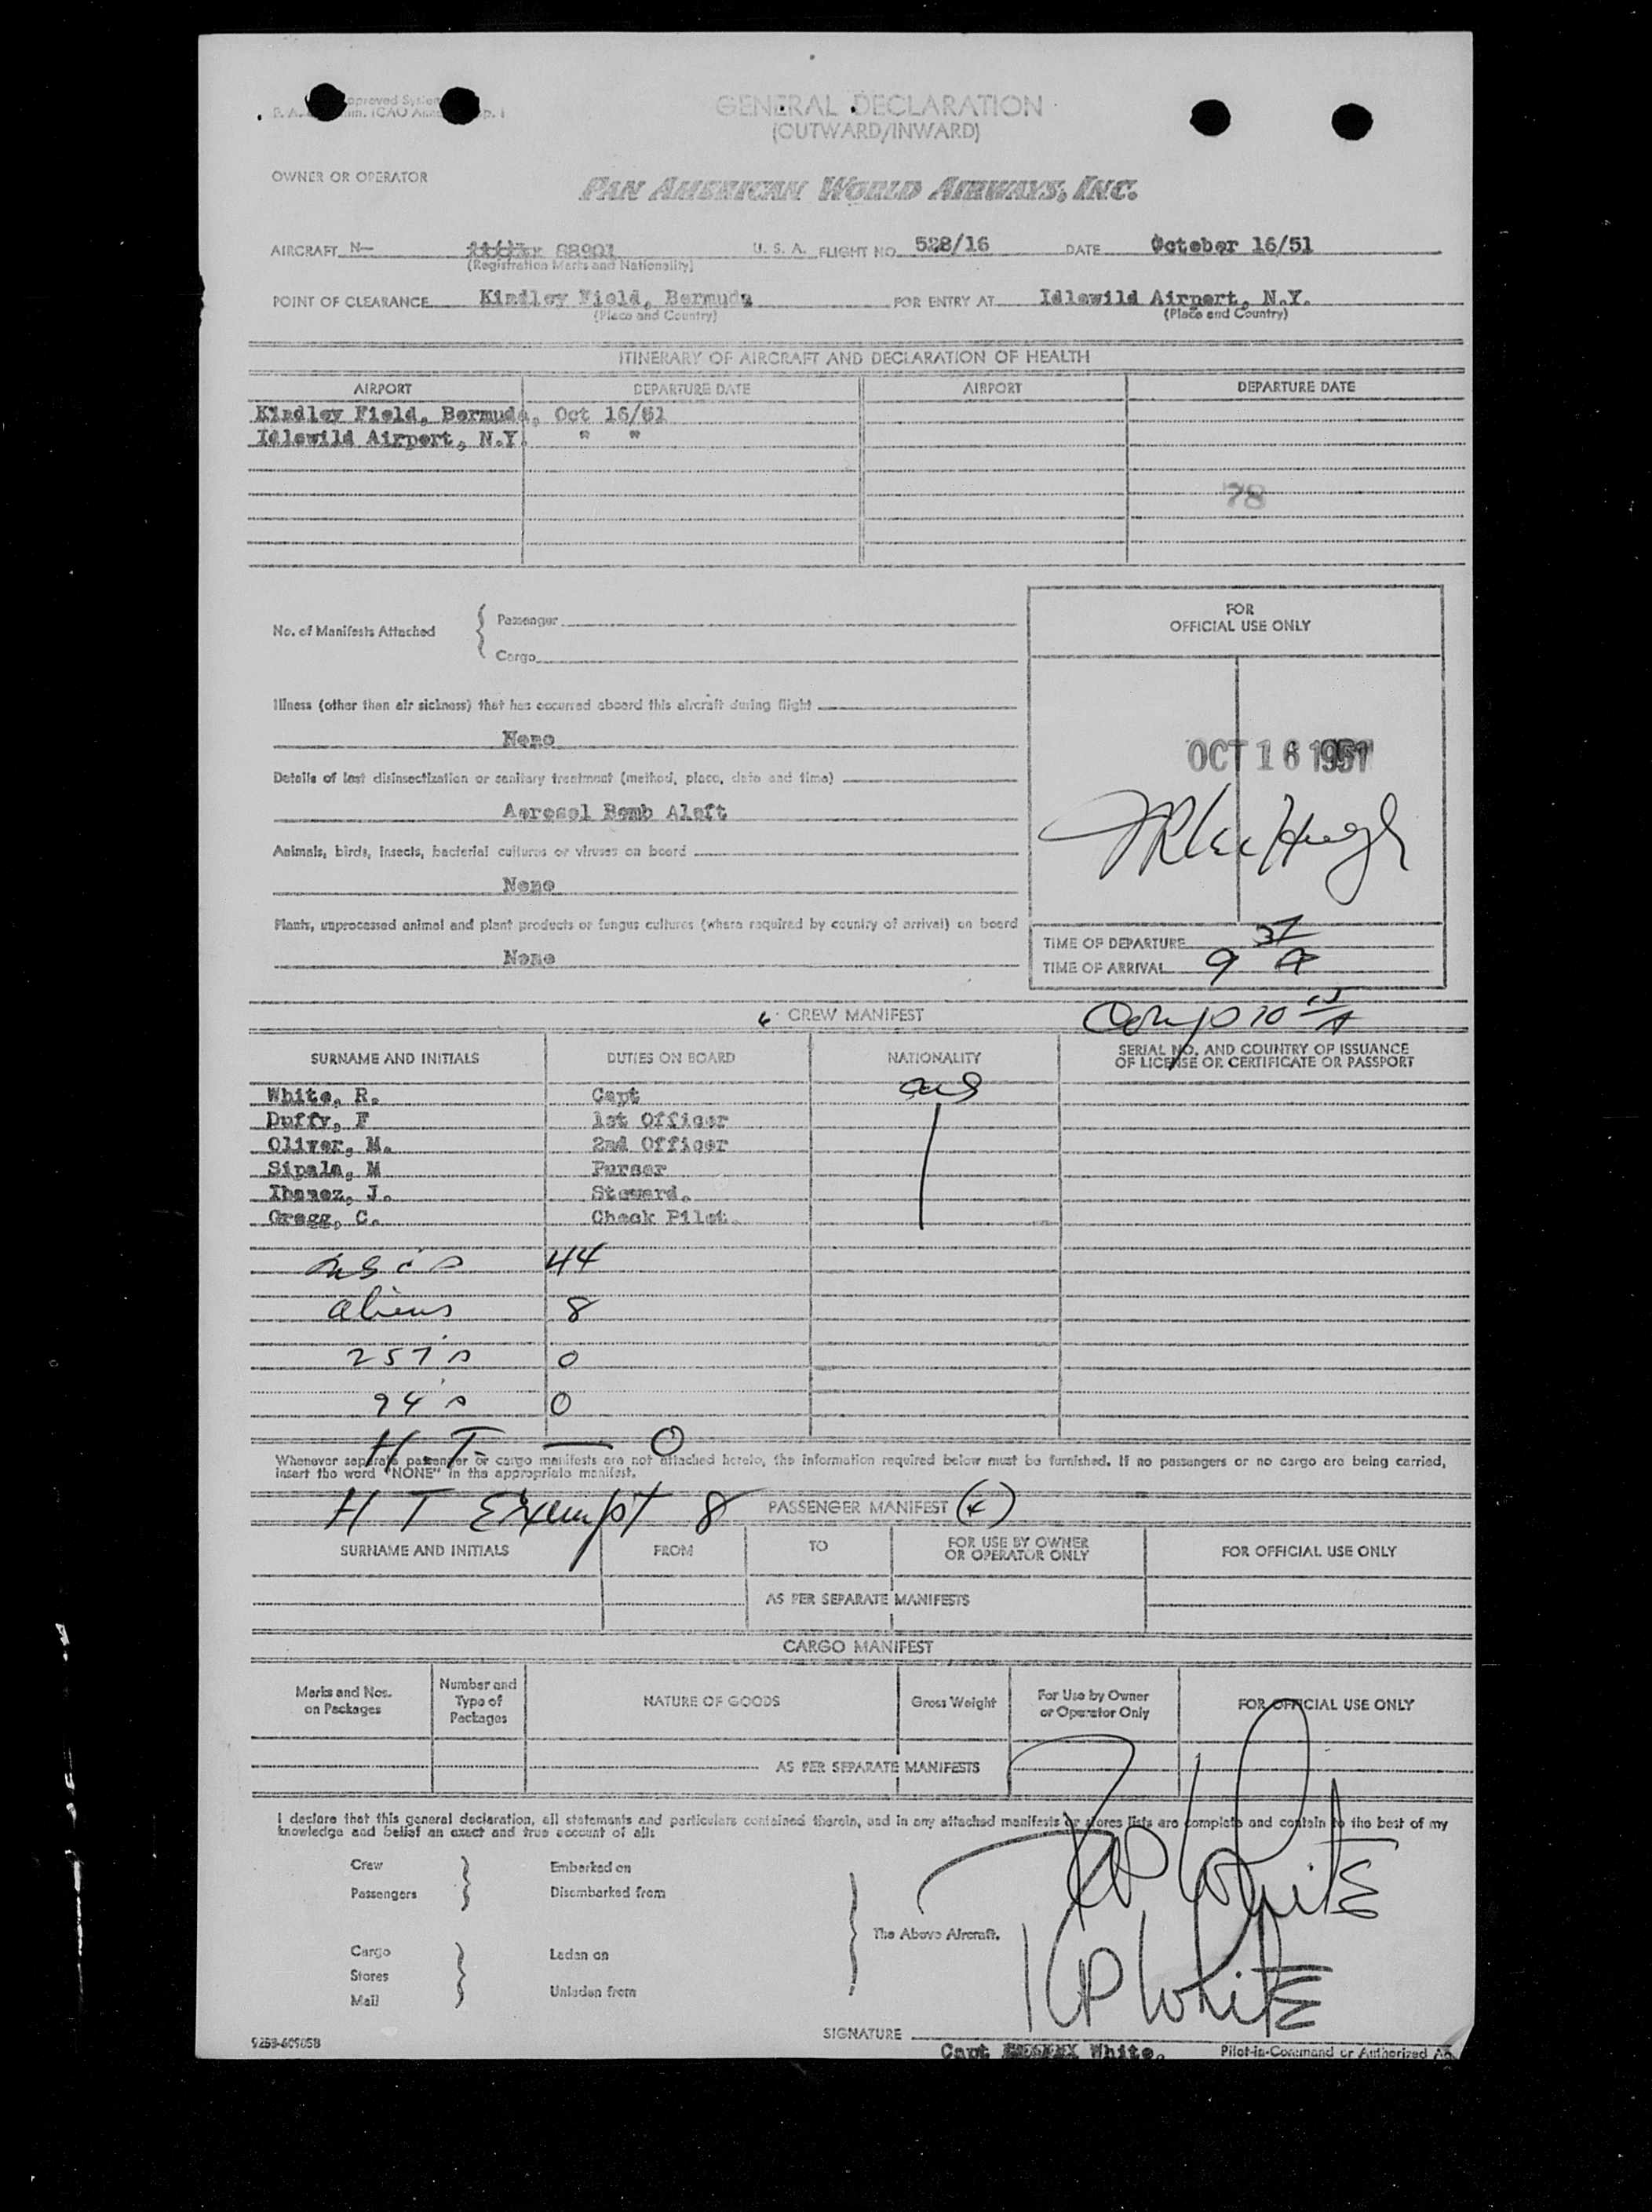 GENERAL DECLARATION
(OUTWARD/INWARD)
OWNER OR OPERATOR
PAN AMERICAN WORLD AIRWAYS, INC.
AIRCRAFT N- 88901 U. S. A. FLIGHT NO. 528/16 DATE October 16/51
(Registration Marks and Nationality)
POINT OF CLEARANCE Kindley Field, Bermuda FOR ENTRY AT Idlewild Airport, N.Y.
(Place and Country) (Place and Country)
ITINERARY OF AIRCRAFT AND DECLARATION OF HEALTH
AIRPORT DEPARTURE DATE AIRPORT DEPARTURE DATE
Kindley Field, Bermuda, Oct 16/51
Idlewild Airport, N.Y. " "
78
FOR
OFFICIAL USE ONLY
No. of Manifests Attached { Passenger
Cargo
Illness (other than air sickness) that has occurred aboard this aircraft during flight
None
OCT 16 1951
Details of last disinsectization or sanitary treatment (method, place, date and time)
Aerosol Bomb Aloft
Animals, birds, insects, bacterial cultures or viruses on board
None
Plants, unprocessed animal and plant products or fungus cultures (where required by country of arrival) on board
None
TIME OF DEPARTURE
TIME OF ARRIVAL 9 37/A
CREW MANIFEST
SURNAME AND INITIALS DUTIES ON BOARD NATIONALITY SERIAL NO. AND COUNTRY OF ISSUANCE
OF LICENSE OR CERTIFICATE OR PASSPORT
White, R. Capt
Duffy, F 1st Officer
Oliver, M. 2nd Officer
Sipala, M Purser
Ibanez, J. Steward.
Gregg, C. Check Pilot.
44
aliens 8
257's 0
94's 0
H.T. — 0
Whenever separate passenger or cargo manifests are not attached hereto, the information required below must be furnished. If no passengers or no cargo are being carried,
insert the word "NONE" in the appropriate manifest.
H T Exempt 8 PASSENGER MANIFEST
SURNAME AND INITIALS FROM TO FOR USE BY OWNER
OR OPERATOR ONLY FOR OFFICIAL USE ONLY
AS PER SEPARATE MANIFESTS
CARGO MANIFEST
Marks and Nos.
on Packages Number and
Type of
Packages NATURE OF GOODS Gross Weight For Use by Owner
or Operator Only FOR OFFICIAL USE ONLY
AS PER SEPARATE MANIFESTS
I declare that this general declaration, all statements and particulars contained therein, and in any attached manifests or stores lists are complete and contain to the best of my
knowledge and belief an exact and true account of all:
Crew } Embarked on
Passengers Disembarked from
The Above Aircraft.
Cargo Laden on
Stores
Mail Unladen from
RP White
RP White
SIGNATURE
Capt White. Pilot-in-Command or Authorized
9263-609058